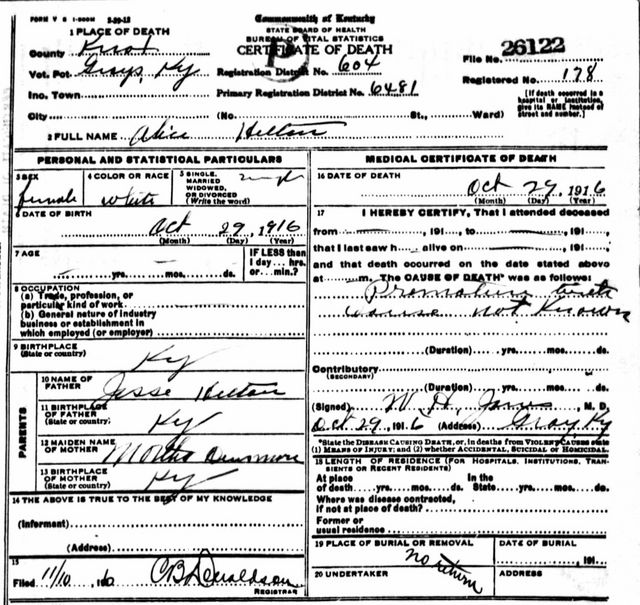 FORM V S 1-500M 2-20-12
Commonwealth of Kentucky
STATE BOARD OF HEALTH
BUREAU OF VITAL STATISTICS
CERTIFICATE OF DEATH
1 PLACE OF DEATH
County Knox
Vot. Pct Grays, Ky
Registration District No. 604
File No. 26122
Inc. Town
Primary Registration District No. 6481
Registered No. 178
City (No. St., Ward)
[If death occurred in a hospital or institution, give its NAME instead of street and number.]
2 FULL NAME Alice Helton
PERSONAL AND STATISTICAL PARTICULARS
3 SEX
female
4 COLOR OR RACE
white
5 SINGLE, MARRIED WIDOWED, OR DIVORCED (Write the word)
single
6 DATE OF BIRTH
Oct 29, 1916
(Month) (Day) (Year)
7 AGE
yrs. mos. ds.
IF LESS than 1 day... hrs. or... min.?
8 OCCUPATION
(a) Trade, profession, or particular kind of work
(b) General nature of industry business or establishment in which employed (or employer)
9 BIRTHPLACE
(State or country)
Ky
PARENTS
10 NAME OF FATHER
Jesse Helton
11 BIRTHPLACE OF FATHER
(State or country)
Ky
12 MAIDEN NAME OF MOTHER
Martha
13 BIRTHPLACE OF MOTHER
(State or country)
Ky
14 THE ABOVE IS TRUE TO THE BEST OF MY KNOWLEDGE
(Informant)
(Address)
15
Filed 11/10, 1916 C B Donaldson
REGISTRAR
MEDICAL CERTIFICATE OF DEATH
16 DATE OF DEATH
Oct 29, 1916
(Month) (Day) (Year)
17 I HEREBY CERTIFY, That I attended deceased
from , 191 , to , 191 ,
that I last saw h alive on , 191 ,
and that death occurred on the date stated above
at m. The CAUSE OF DEATH* was as follows:
Premature birth
cause not known
(Duration) yrs. mos. ds.
Contributory
(SECONDARY)
(Duration) yrs. mos. ds.
(Signed) W. H. Jones, M. D.
Oct 29, 1916 (Address) Gray Ky
*State the DISEASE CAUSING DEATH, or, in deaths from VIOLENT CAUSES state
(1) MEANS OF INJURY; and (2) whether ACCIDENTAL, SUICIDAL or HOMICIDAL.
18 LENGTH OF RESIDENCE (FOR HOSPITALS, INSTITUTIONS, TRANSIENTS OR RECENT RESIDENTS)
At place of death yrs. mos. ds. In the State yrs. mos. ds.
Where was disease contracted,
if not at place of death?
Former or
usual residence
19 PLACE OF BURIAL OR REMOVAL
no return
DATE OF BURIAL
, 191
20 UNDERTAKER
ADDRESS